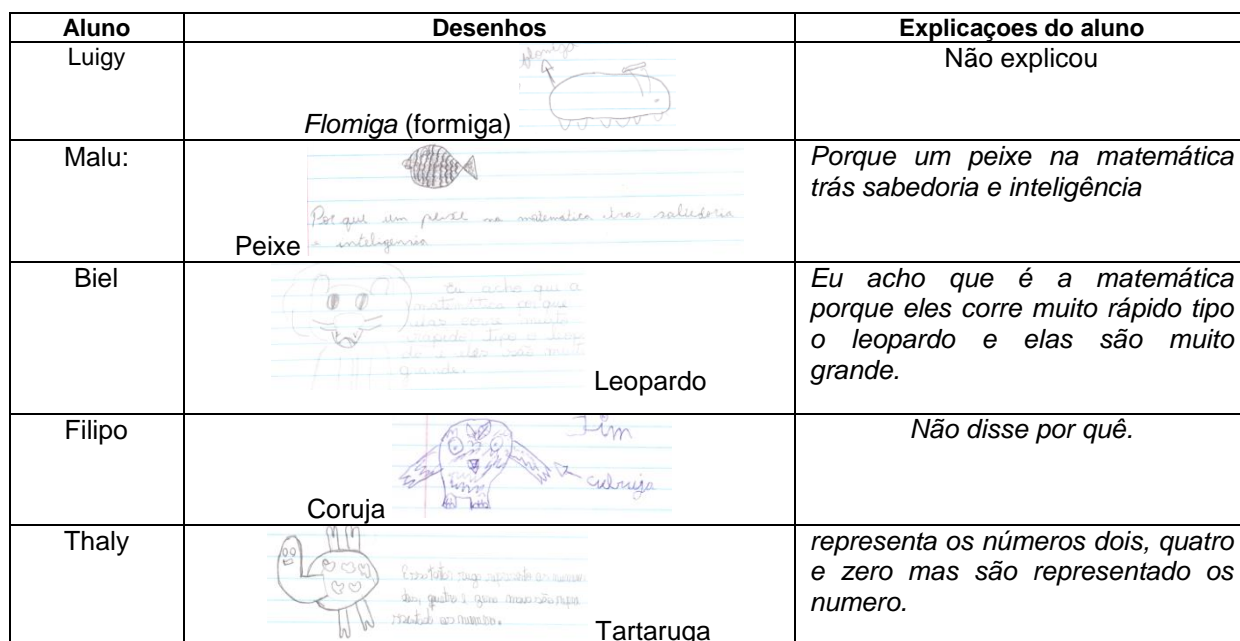 Aluno Desenhos Explicaçoes do aluno
Luigy
flomiga
Flomiga (formiga)
Não explicou
Malu:
Por que um peixe na matemática tras sabedoria
e inteligencia
Peixe
Porque um peixe na matemática
trás sabedoria e inteligência
Biel
Eu acho que a
matemática porque
elas corre muito
rapido tipo o leopar
do e elas são muito
grande.
Leopardo
Eu acho que é a matemática
porque eles corre muito rápido tipo
o leopardo e elas são muito
grande.
Filipo
Fim
Coruja
Não disse por quê.
Thaly
representa os numeros
dois, quatro e zero mas são repre
sentado os numero.
Tartaruga
representa os números dois, quatro
e zero mas são representado os
numero.